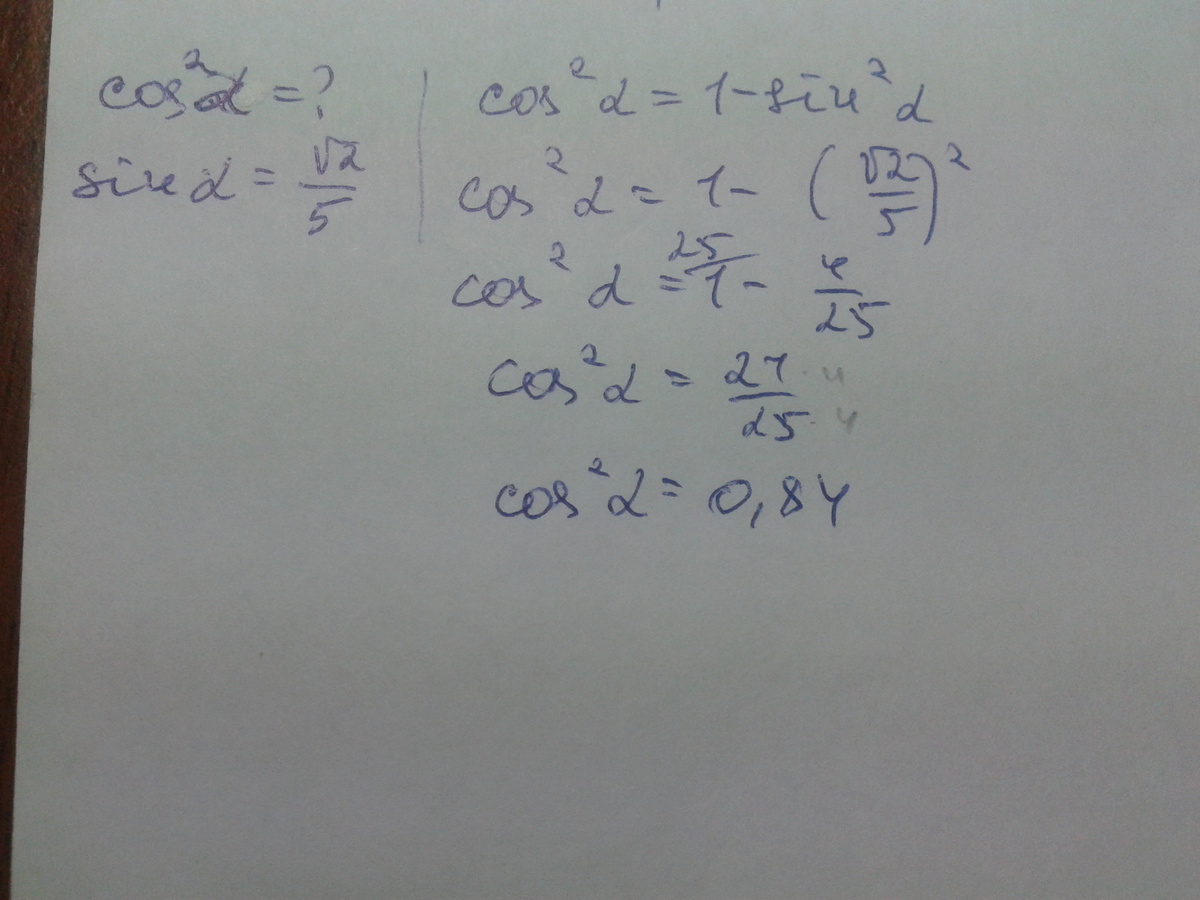 cos²α = ?
sin α = √2/5
cos²α = 1 - sin²α
cos²α = 1 - (√2/5)²
cos²α = ²⁵⁄1 - 4/25
cos²α = 21/25 · 4 / · 4
cos²α = 0,84